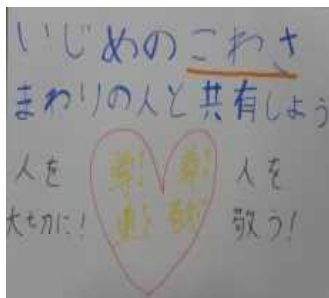 いじめのこわさ
まわりの人と共有しよう
人を
大切に！
尊重
尊敬
人を
敬う！